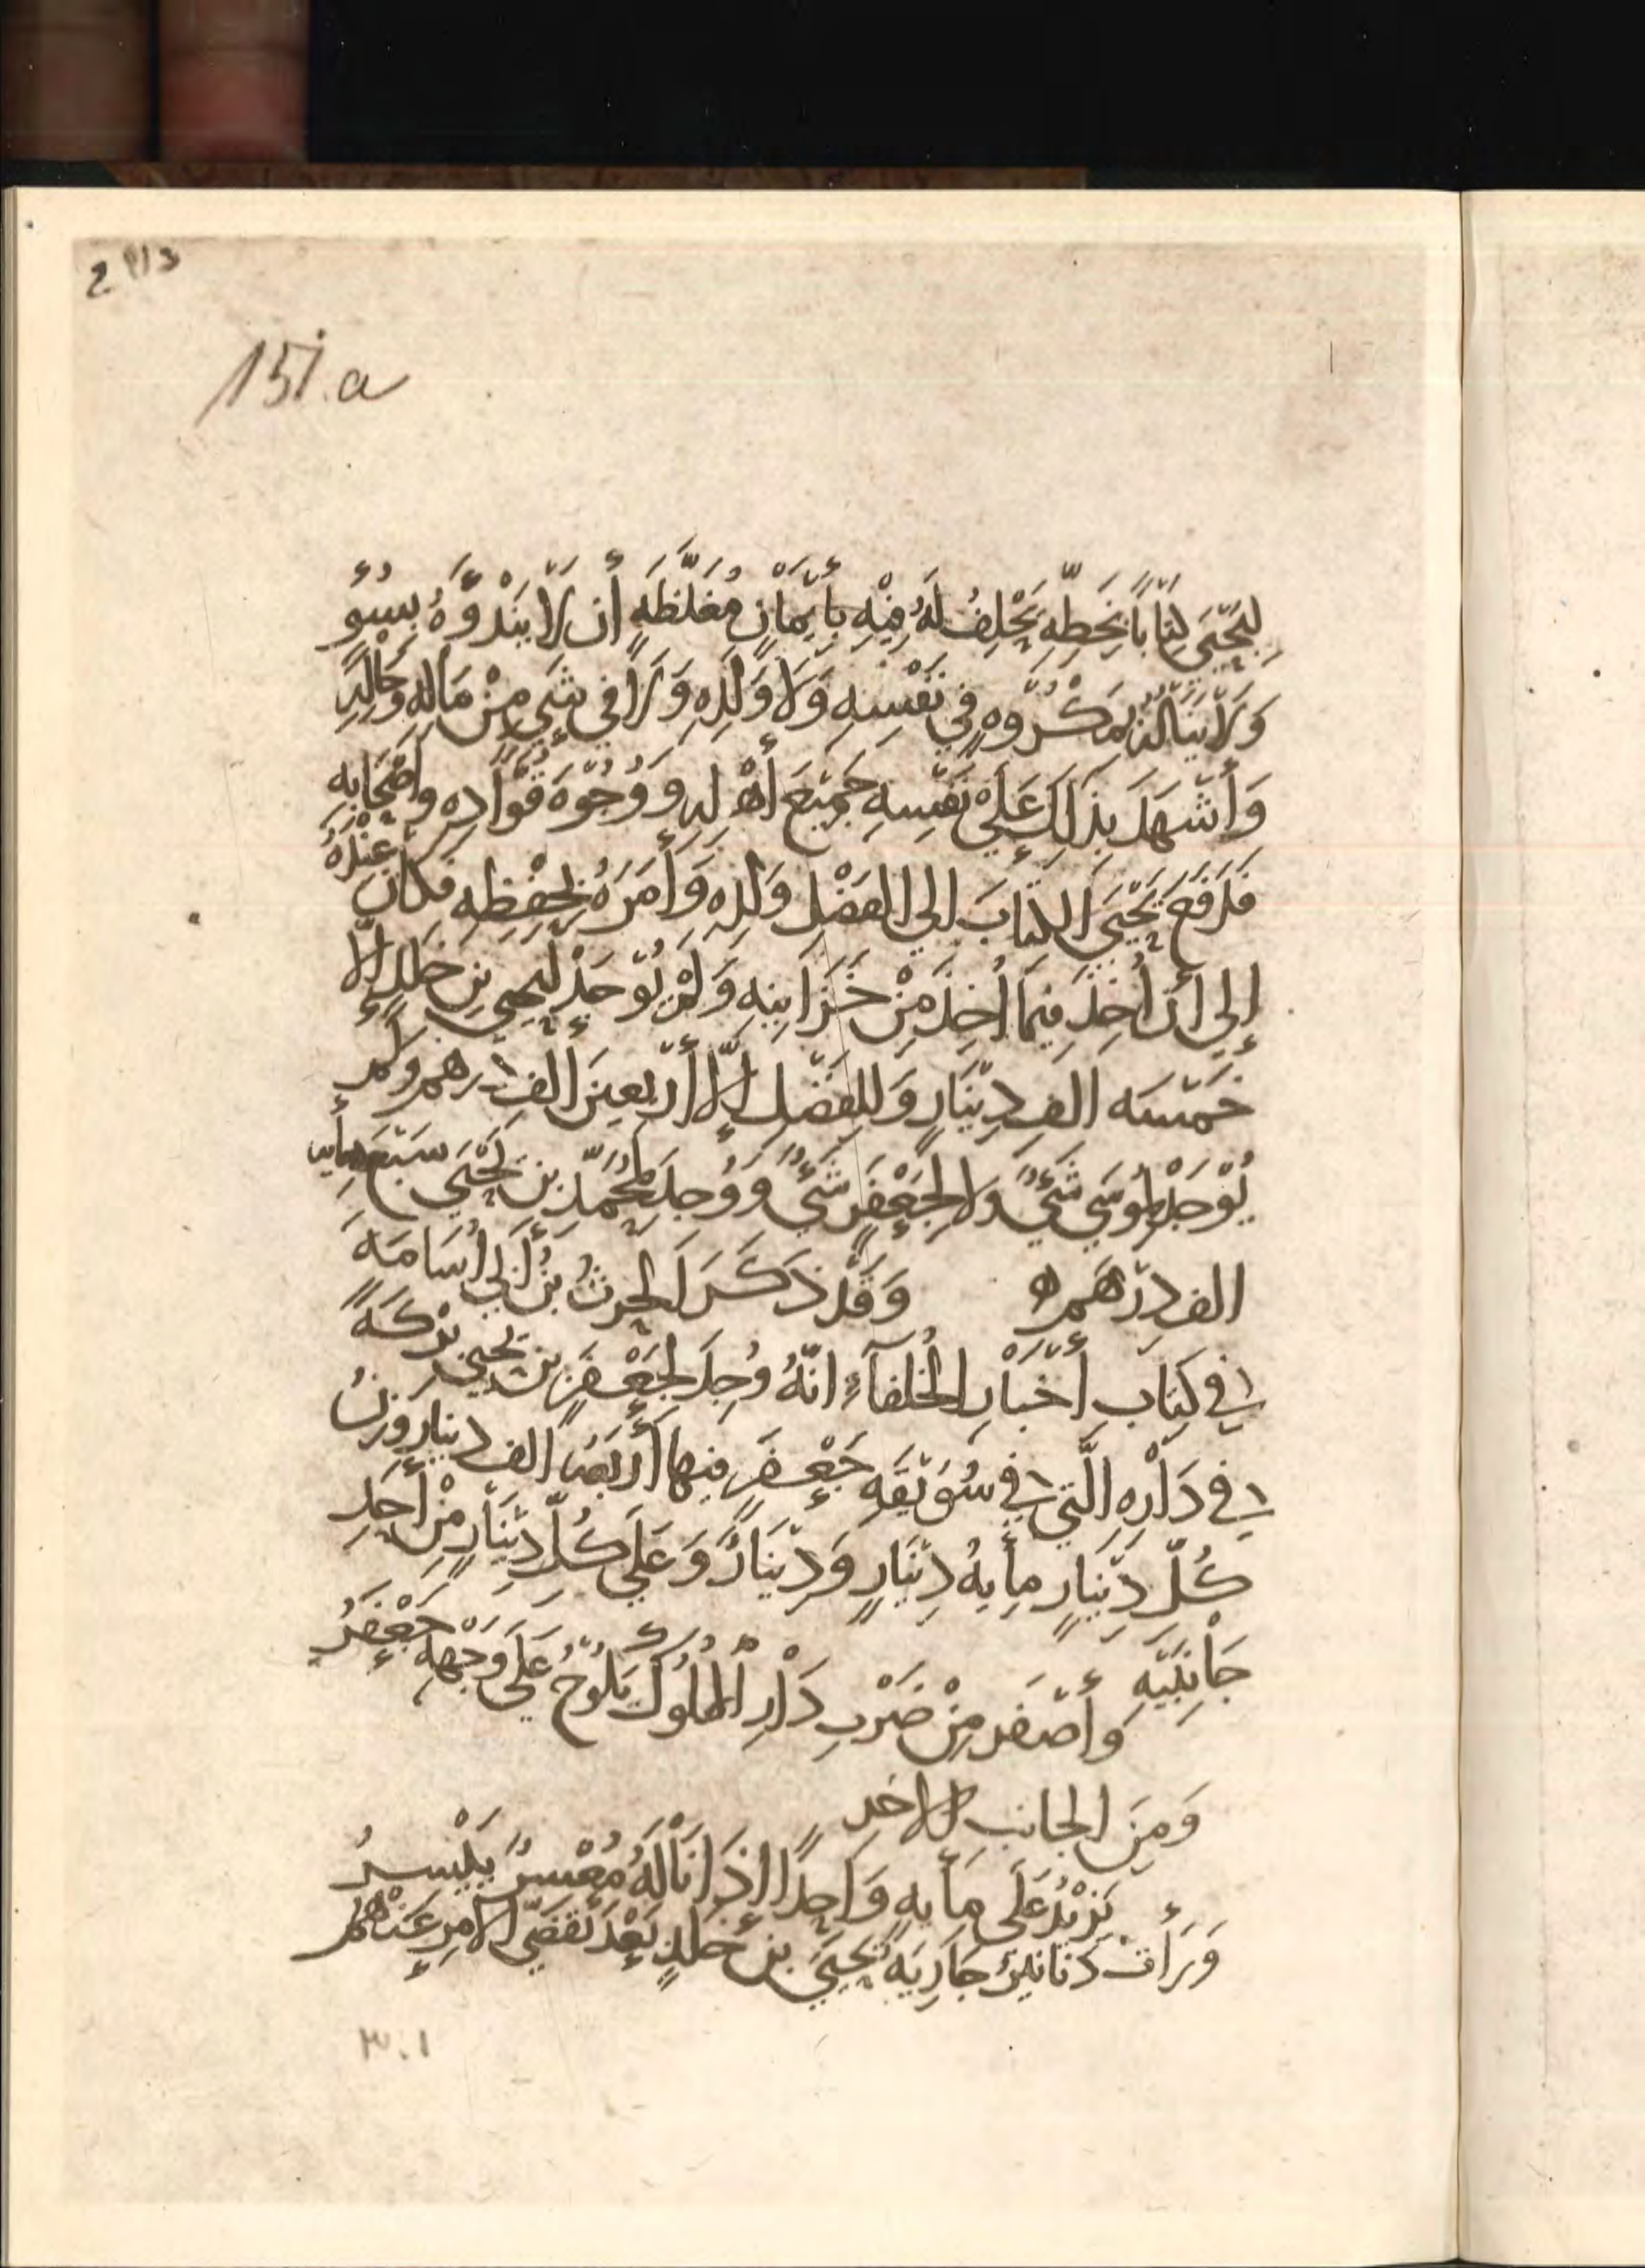 2113
151.a
لِيَحْيَى كِتَابًا بِخَطِّهِ يَحْلِفُ لَهُ فِيْهِ بِأَيْمَانٍ مُغَلَّظَةٍ أن لَا يَبْدَؤَهُ بِسُوءٍ
وَلَا يَنَالَهُ بِمَكْرُوهٍ فِي نَفْسِهِ وَلَا وَلَدِهِ وَلَا فِي شَيءٍ مِنْ مَالِهِ وَحَالِهِ
وَأَشْهَدَ بِذَلِكَ عَلَى نَفْسِهِ جَمِيْعَ أَهْلِهِ وَوُجُوْهَ قُوَّادِهِ وَأَصْحَابِهِ
فَدَفَعَ يَحْيَى الكِتَابَ الى الفَضْلِ وَلَدِهِ وَأَمَرَهُ بِحِفْظِهِ فَكَانَ عِنْدَهُ
إِلى أَن أُخِذَ فِيمَا أُخِذَ مِنْ خَزَائِنِهِ وَلَمْ يُوْجَدْ لِيَحيى بنِ خَلِدٍ إِلَّا
خَمْسَه الف دِيْنَارٍ وَلِلفَضْلِ إِلَّا أَرْبَعِينَ أَلف دِرهمٍ وَلَمْ
يُوْجَدْ لِمُوسَى شَيْءٌ وَلَا لِجَعْفَرٍ شَيْءٌ وَوُجِدَ لِمُحَمَّدِ بنِ يَحْيَى سَبْعَمِأيه
الف دِرْهَمٍ ه وَقَدْ ذَكَرَ الحرثُ بْنُ أَبِي أُسَامَةَ
فِي كِتَابِ أَخْبَارِ الخُلَفَآءِ انّهُ وُجِدَ لِجَعْفَرِ بن يَحيى بِرْكَةً
فِي دَارِهِ الَّتِي فِي سُوَيْقَةِ جَعْفَرٍ فيها أَرْبَعَة الف دينارٍ وَزنُ
كُلّ دِيْنِارٍ مِأيهُ دِيْنَارٍ وَدِيْنَارٌ وَعَلَى كُلِّ دِيْنَارٍ مِنْ أَحَدِ
جَانِبَيْهِ
وَأَصْفَر مِنْ ضَرْبِ دَارِ المُلُوْكِ يَلُوْحُ عَلَى وَجْهِهِ جَعْفَرُ
وَمِنَ الجانِبِ الاخر
يَزِيْدُ عَلَى مِأيهٍ وَاحِدًا اذَا نَالَهُ مُعْسِرٌ يَيْسِرُ
وَرَأَتْ دَنَانيرُ جَارِيَةُ يَحْيَى بن خَلدٍ بَعْدَ تَقَضِّي الأمرِ عَنْهُم
٣٠١